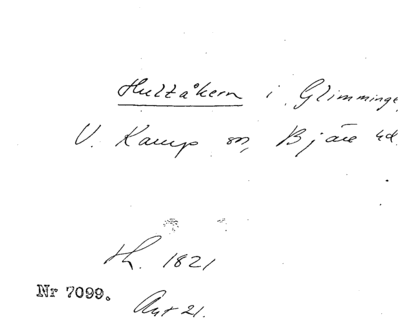 Hultåkern i Glimminge,
V. Karup sn, Bjäre hd.
th. 1821
Nr 7099.
Akt 21.